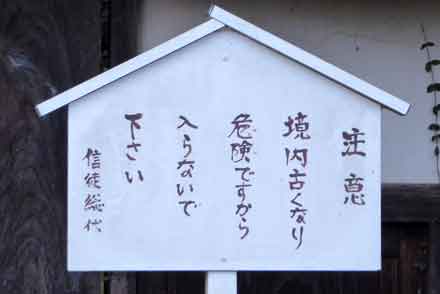 注意
境内古くなり
危険ですから
入らないで
下さい
信徒総代